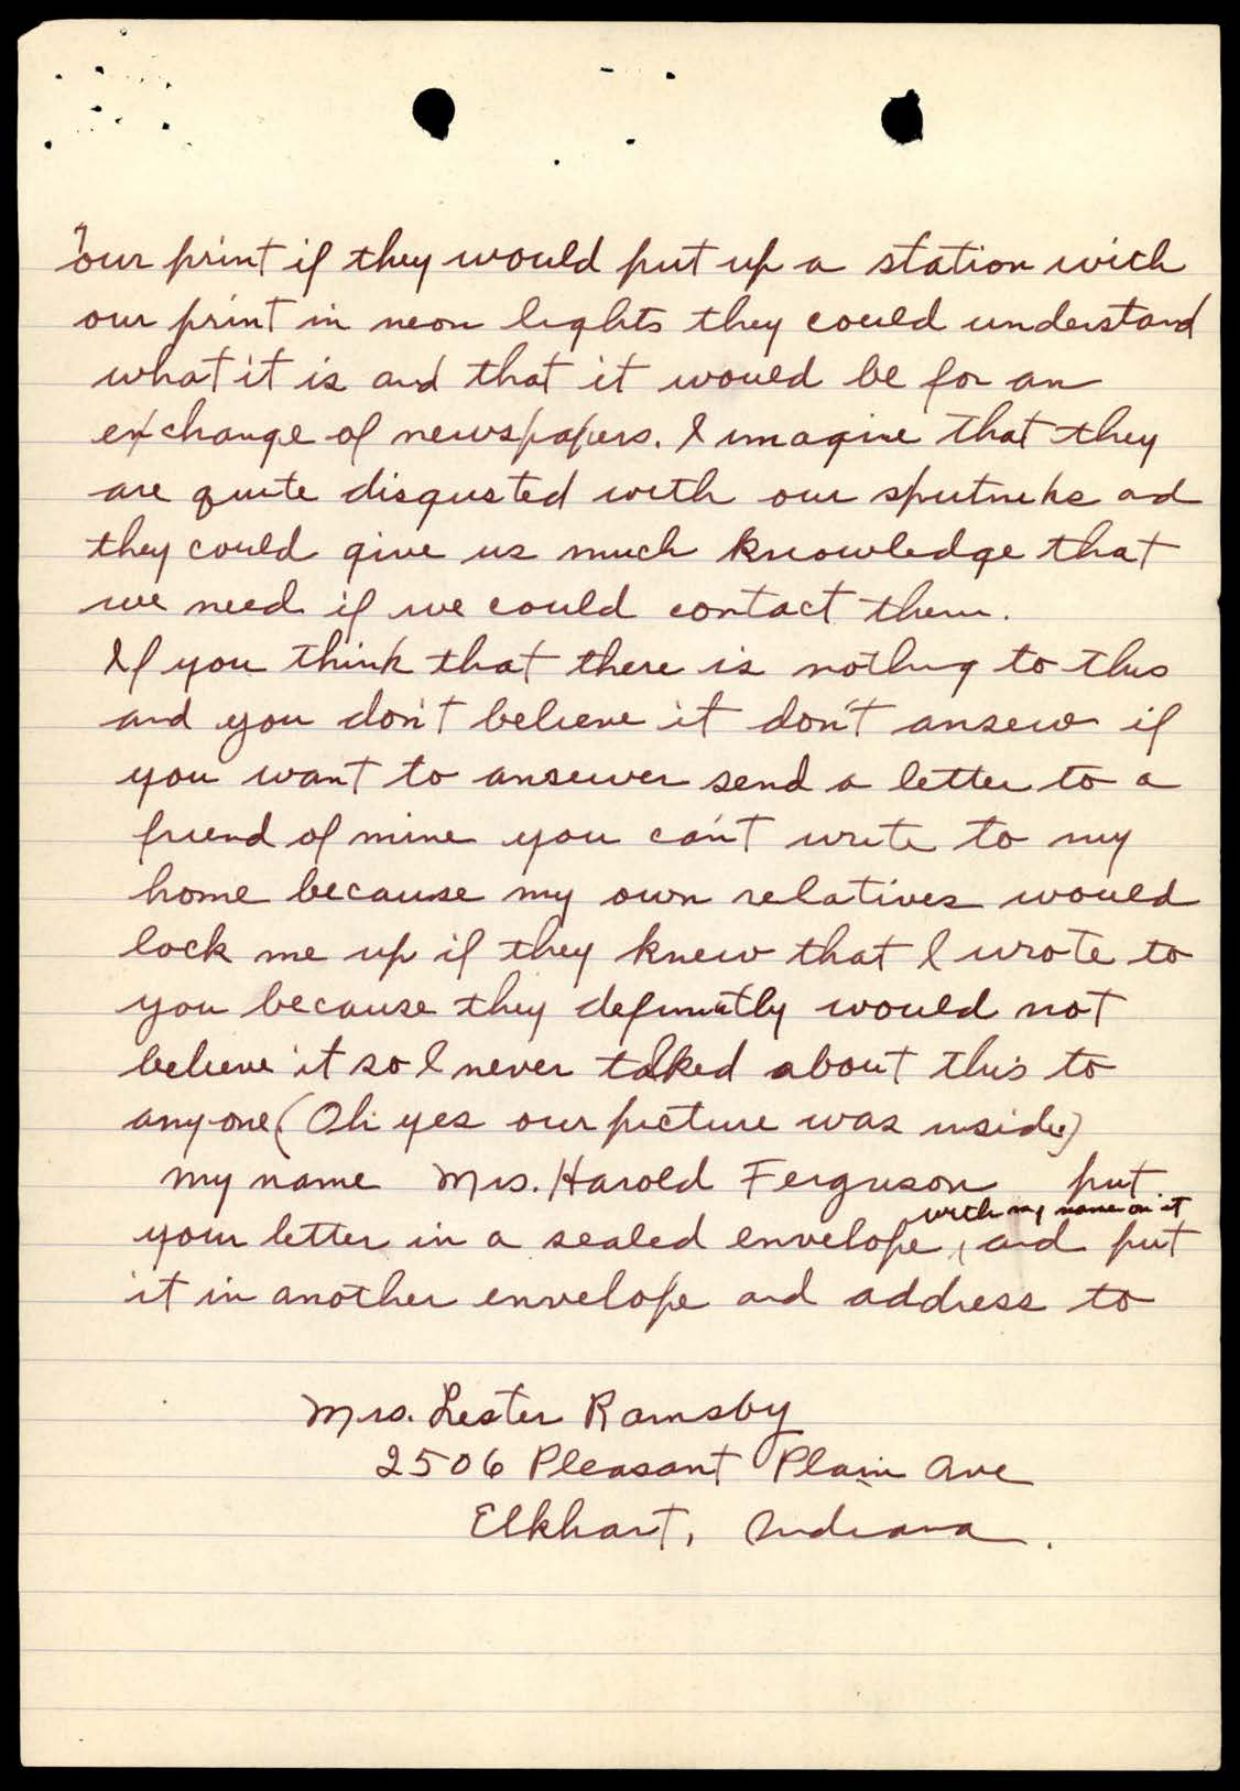 our print if they would put up a station with
our print in neon lights they could understand
what it is and that it would be for an
exchange of newspapers. I imagine that they
are quite disgusted with our sputniks and
they could give us much knowledge that
we need if we could contact them.
If you think that there is nothing to this
and you don't believe it don't ansew if
you want to answer send a letter to a
friend of mine you can't write to my
home because my own relatives would
lock me up if they knew that I wrote to
you because they definitly would not
believe it so I never talked about this to
anyone (Oh yes our picture was inside)
my name Mrs. Harold Ferguson put
with my name on it
your letter in a sealed envelope, and put
it in another envelope and address to
Mrs. Lester Ramsby
2506 Pleasant Plain Ave
Elkhart, Indiana.